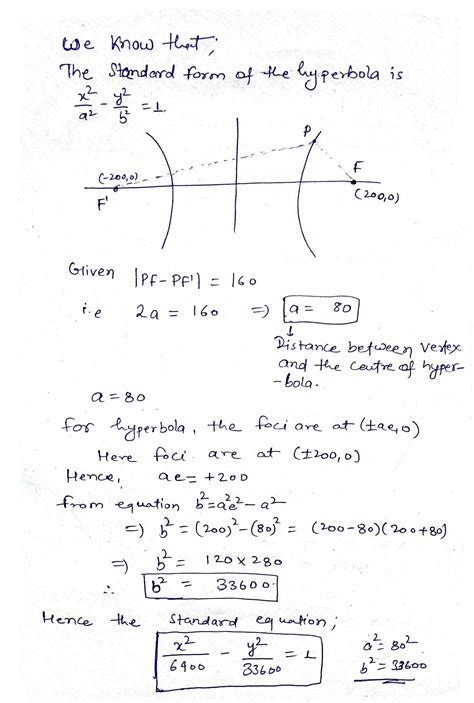 We know that;
The Standard form of the hyperbola is
x²/a² - y²/b² = 1.
P
(-200,0)
F
F'
(200,0)
Given |PF-PF'| = 160
i.e 2a = 160 => a = 80
↓
Distance between vertex
and the centre of hyper-
-bola.
a = 80
for hyperbola, the foci are at (±ae,0)
Here foci are at (±200,0)
Hence, ae = +200
from equation b²=a²e²-a²
=> b² = (200)²-(80)² = (200-80)(200+80)
=> b² = 120 x 280
∴ b² = 33600.
Hence the standard equation;
x²/6400 - y²/33600 = 1
a² = 80²
b² = 33600